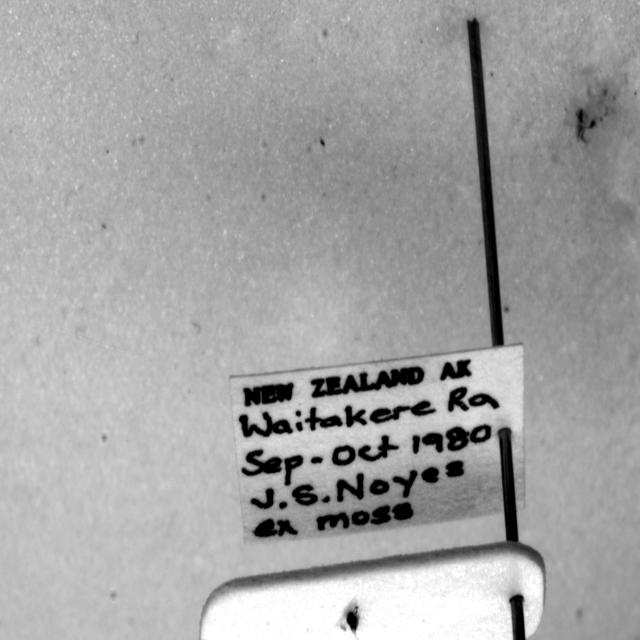 NEW ZEALAND AK
Waitakere Ra
Sep-Oct 1980
J.S.Noyes
ex moss